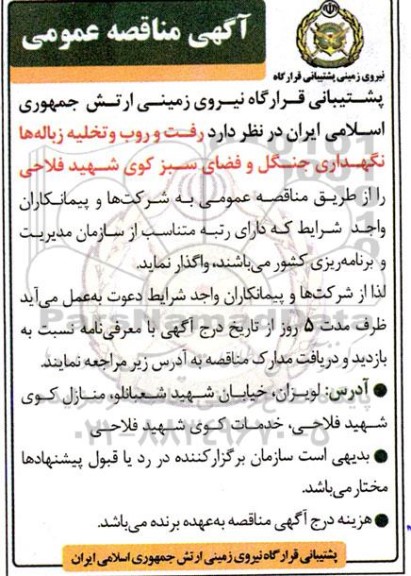 آگهی مناقصه عمومی
نیروی زمینی پشتیبانی قرارگاه
پشتیبانی قرارگاه نیروی زمینی ارتش جمهوری
اسلامی ایران در نظر دارد رفت و روب و تخلیه زباله‌ها
نگهداری جنگل و فضای سبز کوی شهید فلاحی
را از طریق مناقصه عمومی به شرکت‌ها و پیمانکاران
واجد شرایط که دارای رتبه متناسب از سازمان مدیریت
و برنامه‌ریزی کشور می‌باشند، واگذار نماید.
لذا از شرکت‌ها و پیمانکاران واجد شرایط دعوت به‌عمل می‌آید
ظرف مدت ۵ روز از تاریخ درج آگهی با معرفی‌نامه نسبت به
بازدید و دریافت مدارک مناقصه به آدرس زیر مراجعه نمایند.
● آدرس: لویزان، خیابان شهید شعبانلو، منازل کوی
شهید فلاحی، خدمات کوی شهید فلاحی
● بدیهی است سازمان برگزارکننده در رد یا قبول پیشنهادها
مختار می‌باشد.
● هزینه درج آگهی مناقصه به‌عهده برنده می‌باشد.
پشتیبانی قرارگاه نیروی زمینی ارتش جمهوری اسلامی ایران
ParsNamadData
۰۲۱-۸۸۳۴۹۶۷۰-۵